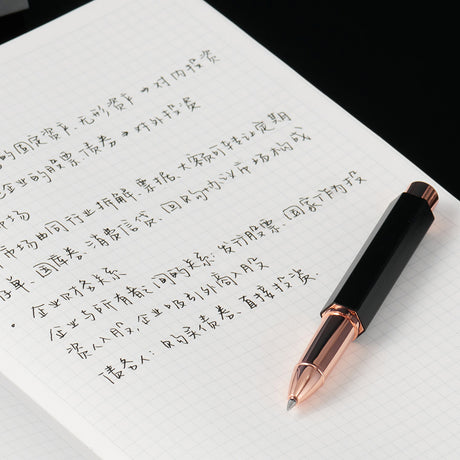 的固定资产、无形资产→对内投资
企业的股票、债券→对外投资
市场
市场由同行业拆解、票据、大额可转让定期
存单、国库券、消费信贷、回购协议市场构成
· 企业财务关系
企业与所有者之间的关系:发行股票、国家作为投
资人入股,企业吸引外商入股
债务人:购买债券、直接投资.